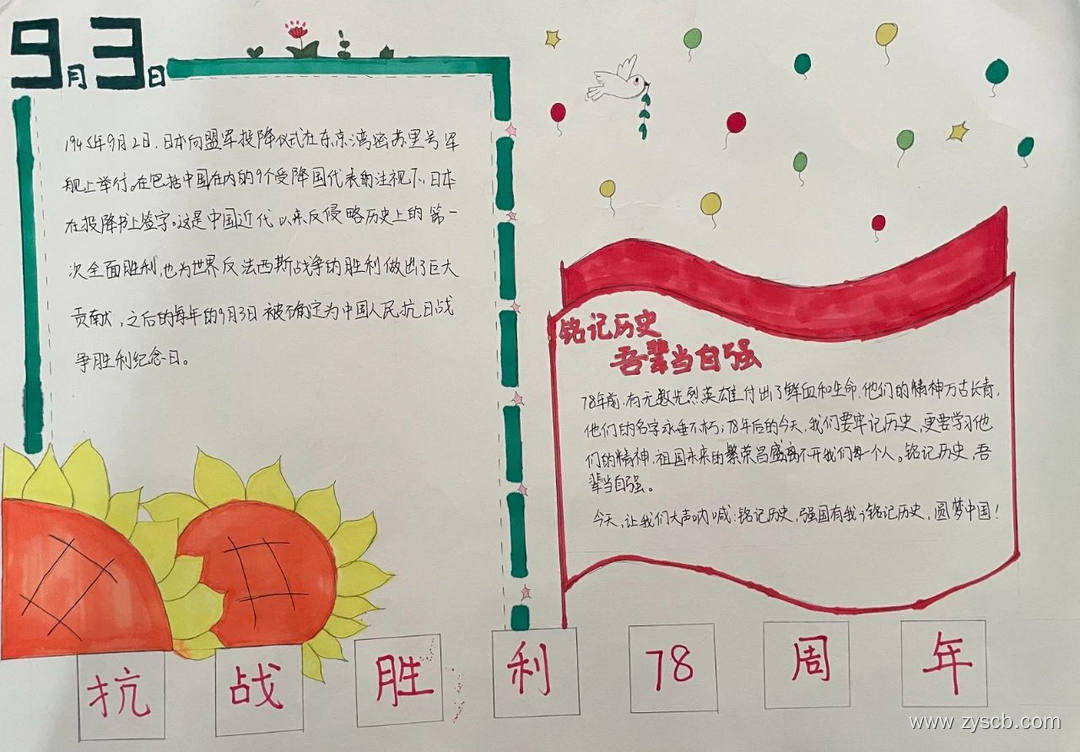 9月3日
1945年9月2日,日本向盟军投降仪式在东京湾密苏里号军
舰上举行。在包括中国在内的9个受降国代表的注视下,日本
在投降书上签字。这是中国近代以来反侵略历史上的第一
次全面胜利,也为世界反法西斯战争的胜利做出了巨大
贡献,之后的每年的9月3日被确定为中国人民抗日战
争胜利纪念日。
铭记历史
吾辈当自强
78年前,有无数先烈英雄付出了鲜血和生命,他们的精神万古长青,
他们的名字永垂不朽;78年后的今天,我们要牢记历史,更要学习他
们的精神,祖国未来的繁荣昌盛离不开我们每个人。铭记历史,吾
辈当自强。
今天,让我们大声呐喊:铭记历史,强国有我;铭记历史,圆梦中国!
抗战胜利78周年
www.zyscb.com